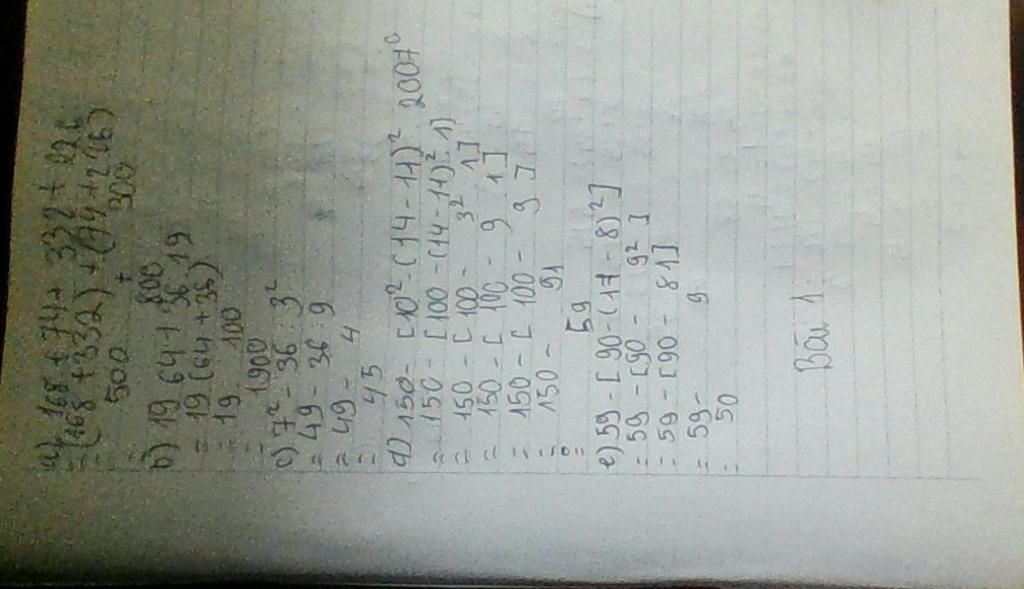 a) 168 + 74 + 332 + 226
= (168 + 332) + (74 + 226)
= 500 + 300
= 800
b) 19 64 + 36 19
= 19 (64 + 36)
= 19 100
= 1900
c) 7² - 36 : 3²
= 49 - 36 : 9
= 49 - 4
= 45
d) 150 - [10² - (14 - 11)² 2007⁰
= 150 - [100 - (14 - 11)² 1]
= 150 - [100 - 3² 1]
= 150 - [100 - 9 1]
= 150 - [100 - 9]
= 150 - 91
= 59
e) 59 - [90 - (17 - 8)²]
= 59 - [90 - 9²]
= 59 - [90 - 81]
= 59 - 9
= 50
Bài 1: